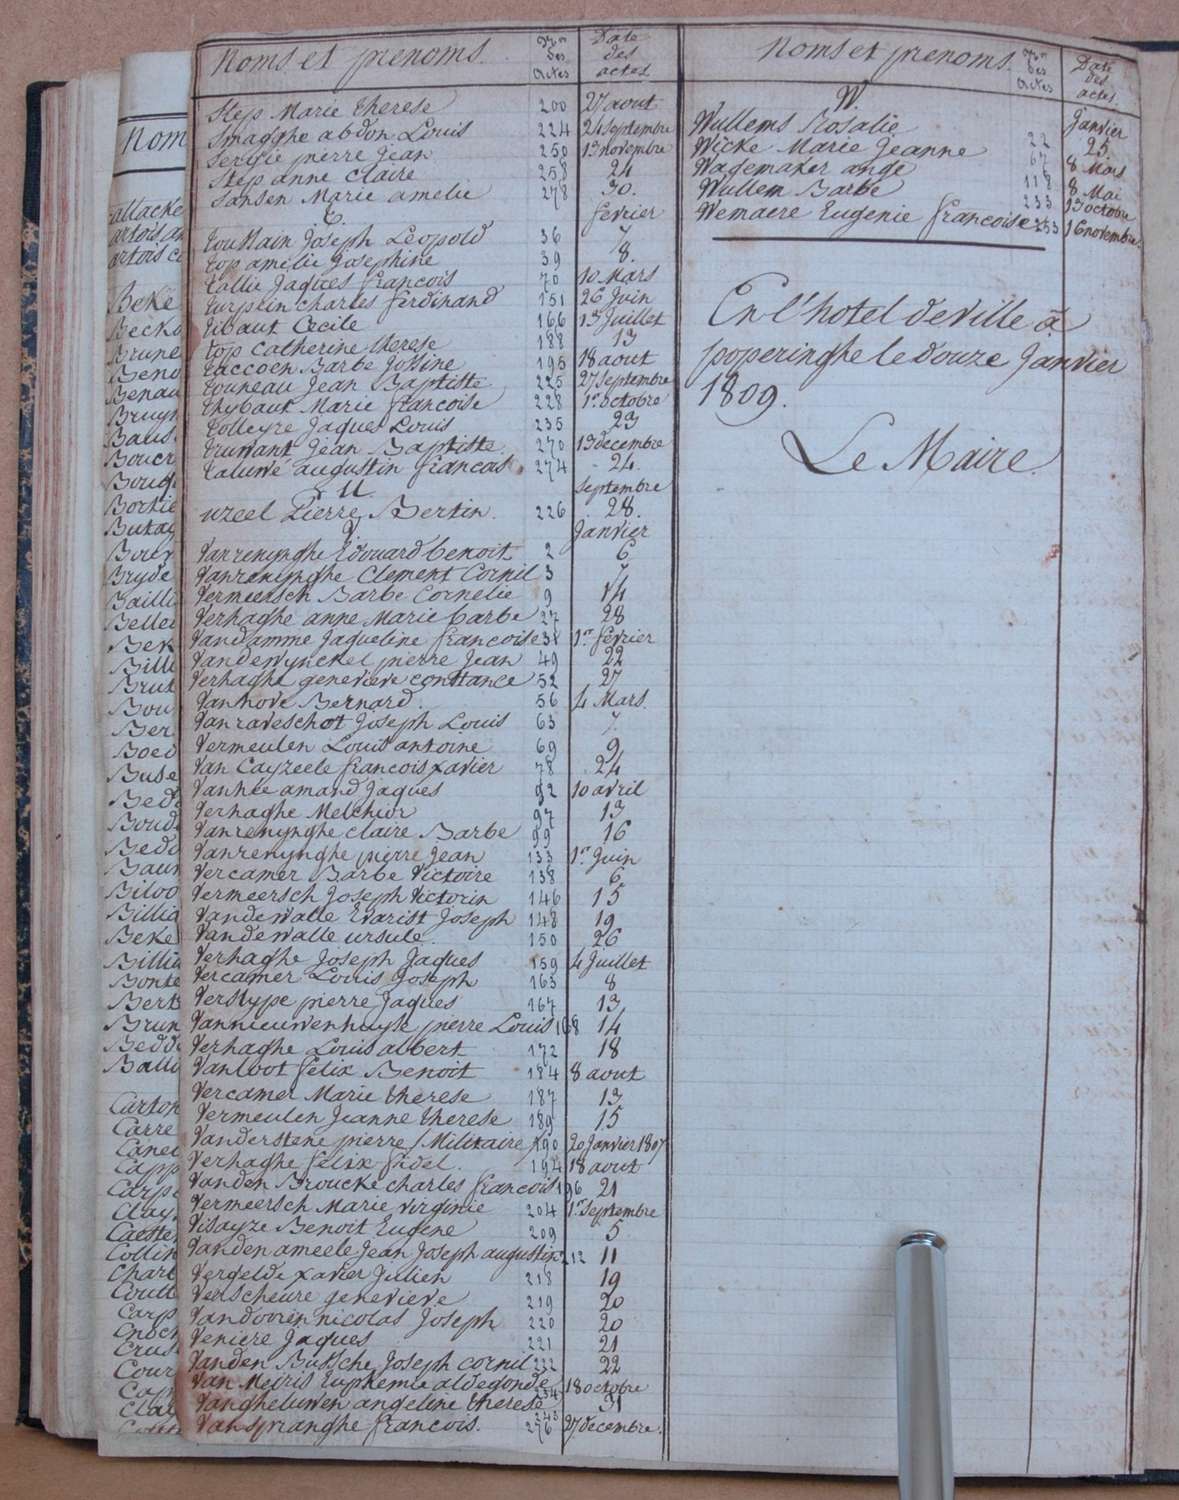 Noms et prenoms. Nros des Actes Date des actes
Step Marie therese 200 27 aout
Smagghe abdon Louis 224 24 Septembre
Sergie pierre Jean 250 1er novembre
Step anne Claire 258 24
Sansen Marie amelie 278 30.
T. fevrier
toussain Joseph Leopold 36 7
top amelie Josephine 39 8.
tallie Jaques francois 70 10 Mars
turpein charles ferdinand 151 26 Juin
tibaut Cecile 166 13 Juillet
top Catherine therese 188 13
taccoen Barbe Jossine 195 18 aout
touneau Jean Baptiste 225 27 Septembre
thybaut Marie francoise 228 1er octobre
tolleyre Jaques Louis 235 23
truwant Jean Baptiste 270 13 decembre
taluwé augustin francois 274 24
U. Septembre
uzeel Pierre Bertin. 226 28.
V Janvier
Vanrenynghe Edouard benoit 2 6
Vanrenynghe Clement Cornil 3 7
Vermeersch Barbe Cornelie 9 14
Verhaghe anne Marie barbe 27 28
Vandamme Jaqueline francoise 31 1er fevrier
Vandewynckel pierre Jean 49 22
Verhaghe genevieve constance 52 27
Vanhove Bernard. 56 4 Mars
Vanraveschot Joseph Louis 63 7
Vermeulen Louis antoine 69 9
Van Cayzeele francois xavier 78 24
Vanhée amand Jaques 92 10 avril
Verhaghe Melchior 97 13
Vanrenynghe claire Barbe 99 16
Vanrenynghe pierre Jean 133 1er Juin
Vercamer Barbe Victoire 138 6
Vermeersch Joseph Victorin 146 15
Vandewalle Evarist Joseph 148 19
Vandewalle ursule. 150 26
Verhaghe Joseph Jaques 159 4 Juillet
Vercamer Louis Joseph 163 8
Verslype pierre Jaques 167 13
Vannieuwenhuyse pierre Louis 168 14
Verhaghe Louis albert 172 18
Vanloot felix Benoit 184 8 aout
Vercamer Marie therese 187 13
Vermeulen Jeanne therese 189 15
Vanderstene pierre / Militaire / 190 20 Janvier 1807
Verhaghe felix fidel. 194 18 aout
Vanden Broucke charles francois 196 21
Vermeersch Marie virginie 204 1er Septembre
Visayze Benoit Eugene 209 5
Vanden ameele Jean Joseph augustin 212 11
Vergelde xavier Julien 218 19
Verscheure genevieve 219 20
Vandooren nicolas Joseph 220 20
Veniere Jaques 221 21
Vanden Bussche Joseph cornil 222 22
Van Meiris Euphemie aldegonde 234 18 octobre
Vangheluwen angeline therese 243 31
Vanspranghe francois. 276 27 decembre.
Noms et prenoms. Nros des Actes Date des actes.
W. Janvier
Wullems Rosalie 22 25
Wicke Marie Jeanne 67 8 Mars
Wademaker ange 118 8 Mai
Wullem Barbe 233 13 octobre
Wemaere Eugenie francoise 253 16 novembre
En l'hotel de ville à
poperinghe le douze Janvier
1809.
Le Maire.
Nom
Beke
Becko
Brune
Beno
Benau
Bruyn
Baus
Boucr
Bortie
Butay
Bryde
Bailli
Belle
Bek
Bill
Brut
Bou
Ber
Boed
Buse
Bedd
Boud
Bedd
Baun
Biloo
Billia
Beke
Billi
Bonte
Bert
Brun
Bedd
Balli
Carton
Carre
Canel
Capp
Carpe
Clay
Caester
Collin
Charl
Coull
Carp
Crus
Cour
Clay